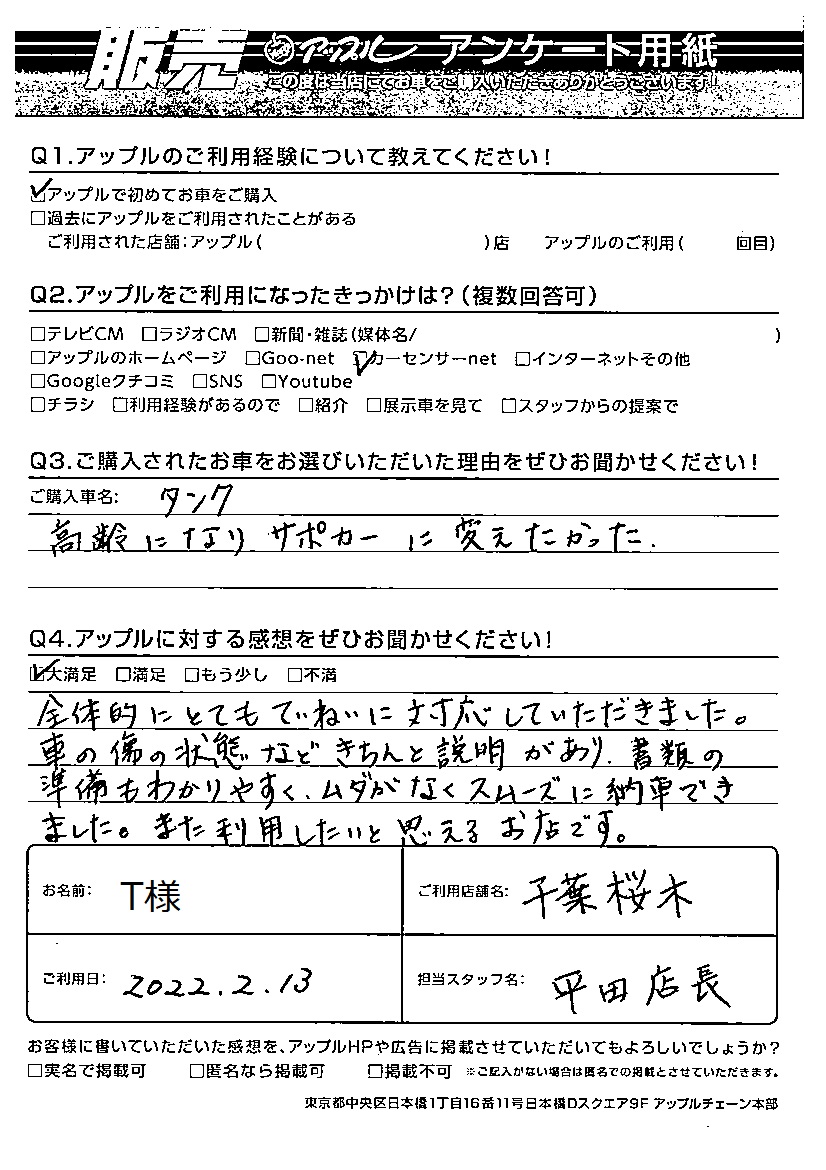 販売 アップル アンケート用紙
この度は当店にてお車をご購入いただきありがとうございます!
Q1.アップルのご利用経験について教えてください!
☑アップルで初めてお車をご購入
□過去にアップルをご利用されたことがある
ご利用された店舗:アップル( )店 アップルのご利用( 回目)
Q2.アップルをご利用になったきっかけは?(複数回答可)
□テレビCM □ラジオCM □新聞・雑誌(媒体名/ )
□アップルのホームページ □Goo-net ☑カーセンサーnet □インターネットその他
□Googleクチコミ □SNS □Youtube
□チラシ □利用経験があるので □紹介 □展示車を見て □スタッフからの提案で
Q3.ご購入されたお車をお選びいただいた理由をぜひお聞かせください!
ご購入車名: タンク
高齢になりサポカーに変えたかった.
Q4.アップルに対する感想をぜひお聞かせください!
☑大満足 □満足 □もう少し □不満
全体的にとてもていねいに対応していただきました。
車の傷の状態などきちんと説明があり、書類の
準備もわかりやすく、ムダがなくスムーズに納車でき
ました。また利用したいと思えるお店です。
お名前: T様
ご利用店舗名: 千葉桜木
ご利用日: 2022.2.13
担当スタッフ名: 平田店長
お客様に書いていただいた感想を、アップルHPや広告に掲載させていただいてもよろしいでしょうか?
□実名で掲載可 □匿名なら掲載可 □掲載不可 ※ご記入がない場合は匿名での掲載とさせていただきます。
東京都中央区日本橋1丁目16番11号日本橋Dスクエア9F アップルチェーン本部